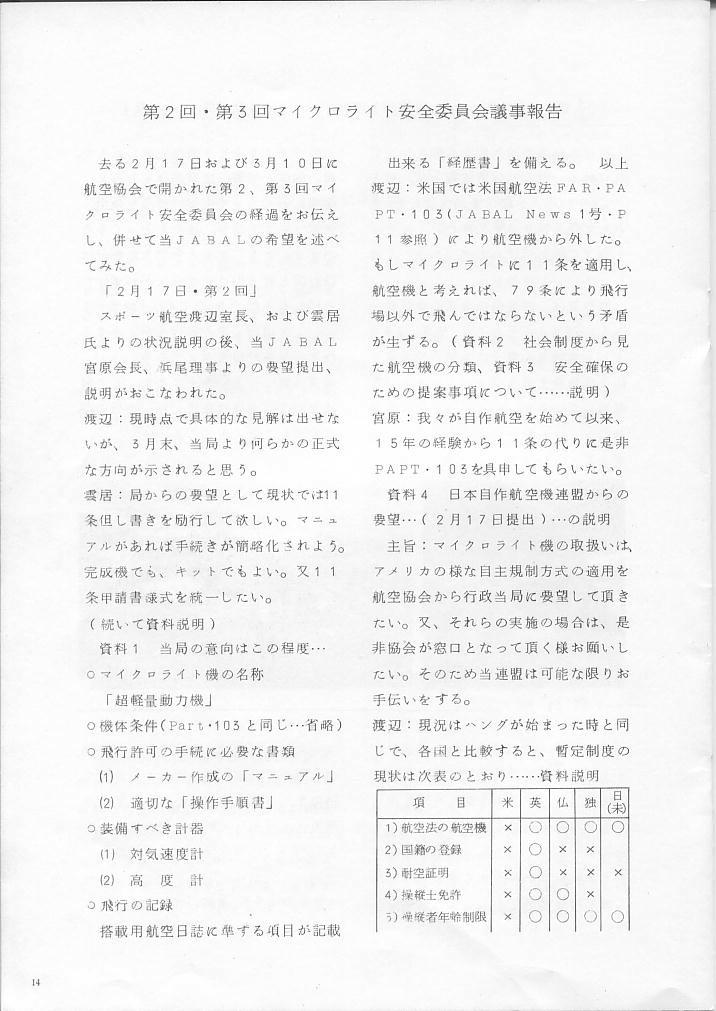 第2回・第3回マイクロライト安全委員会議事報告
去る2月17日および3月10日に
航空協会で開かれた第2、第3回マイ
クロライト安全委員会の経過をお伝え
し、併せて当JABALの希望を述べ
てみた。
「2月17日・第2回」
スポーツ航空渡辺室長、および雲居
氏よりの状況説明の後、当JABAL
宮原会長、浜尾理事よりの要望提出、
説明がおこなわれた。
渡辺：現時点で具体的な見解は出せな
いが、3月末、当局より何らかの正式
な方向が示されると思う。
雲居：局からの要望として現状では11
条但し書きを励行して欲しい。マニュ
アルがあれば手続きが簡略化されよう。
完成機でも、キットでもよい。又11
条申請書様式を統一したい。
（続いて資料説明）
資料1　当局の意向はこの程度…
○マイクロライト機の名称
「超軽量動力機」
○機体条件(Part・103と同じ…省略)
○飛行許可の手続に必要な書類
(1)　メーカー作成の「マニュアル」
(2)　適切な「操作手順書」
○装備すべき計器
(1)　対気速度計
(2)　高　度　計
○飛行の記録
搭載用航空日誌に準ずる項目が記載
出来る「経歴書」を備える。　以上
渡辺：米国では米国航空法FAR・PA
PT・103(JABAL News1号・P
11参照）により航空機から外した。
もしマイクロライトに11条を適用し、
航空機と考えれば、79条により飛行
場以外で飛んではならないという矛盾
が生ずる。（資料2　社会制度から見
た航空機の分類、資料3　安全確保の
ための提案事項について……説明）
宮原：我々が自作航空を始めて以来、
15年の経験から11条の代りに是非
PAPT・103を具申してもらいたい。
資料4　日本自作航空機連盟からの
要望…（2月17日提出）…の説明
主旨：マイクロライト機の取扱いは、
アメリカの様な自主規制方式の適用を
航空協会から行政当局に要望して頂き
たい。又、それらの実施の場合は、是
非協会が窓口となって頂く様お願いし
たい。そのため当連盟は可能な限りお
手伝いをする。
渡辺：現況はハングが始まった時と同
じで、各国と比較すると、暫定制度の
現状は次表のとおり……資料説明
項　目　米　英　仏　独　日(未)
1)航空法の航空機　×　○　○　○　○
2)国籍の登録　×　○　×　×
3)耐空証明　×　○　×　×　×
4)操縦士免許　×　○　○　×
5)操縦者年齢制限　×　○　○　○　○
14